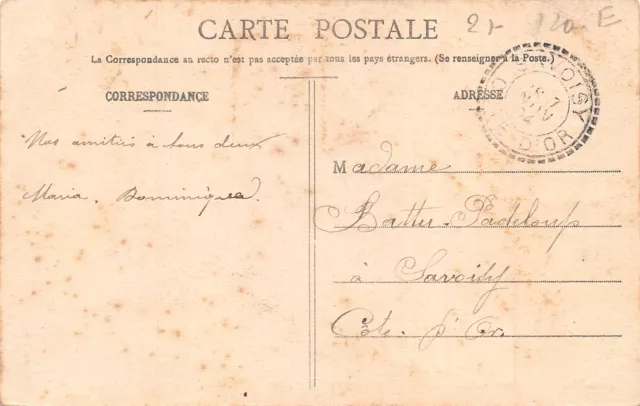 CARTE POSTALE
21- 120- E
La Correspondance au recto n'est pas acceptée par tous les pays étrangers. (Se renseigner à la Poste.)
CORRESPONDANCE
ADRESSE
SAVOISY
7
CÔTE-D'OR
Nos amitiés à tous deux
Maria. Dominique.
Madame
Battu-Padeloup
à Savoisy
Côte-d'Or.